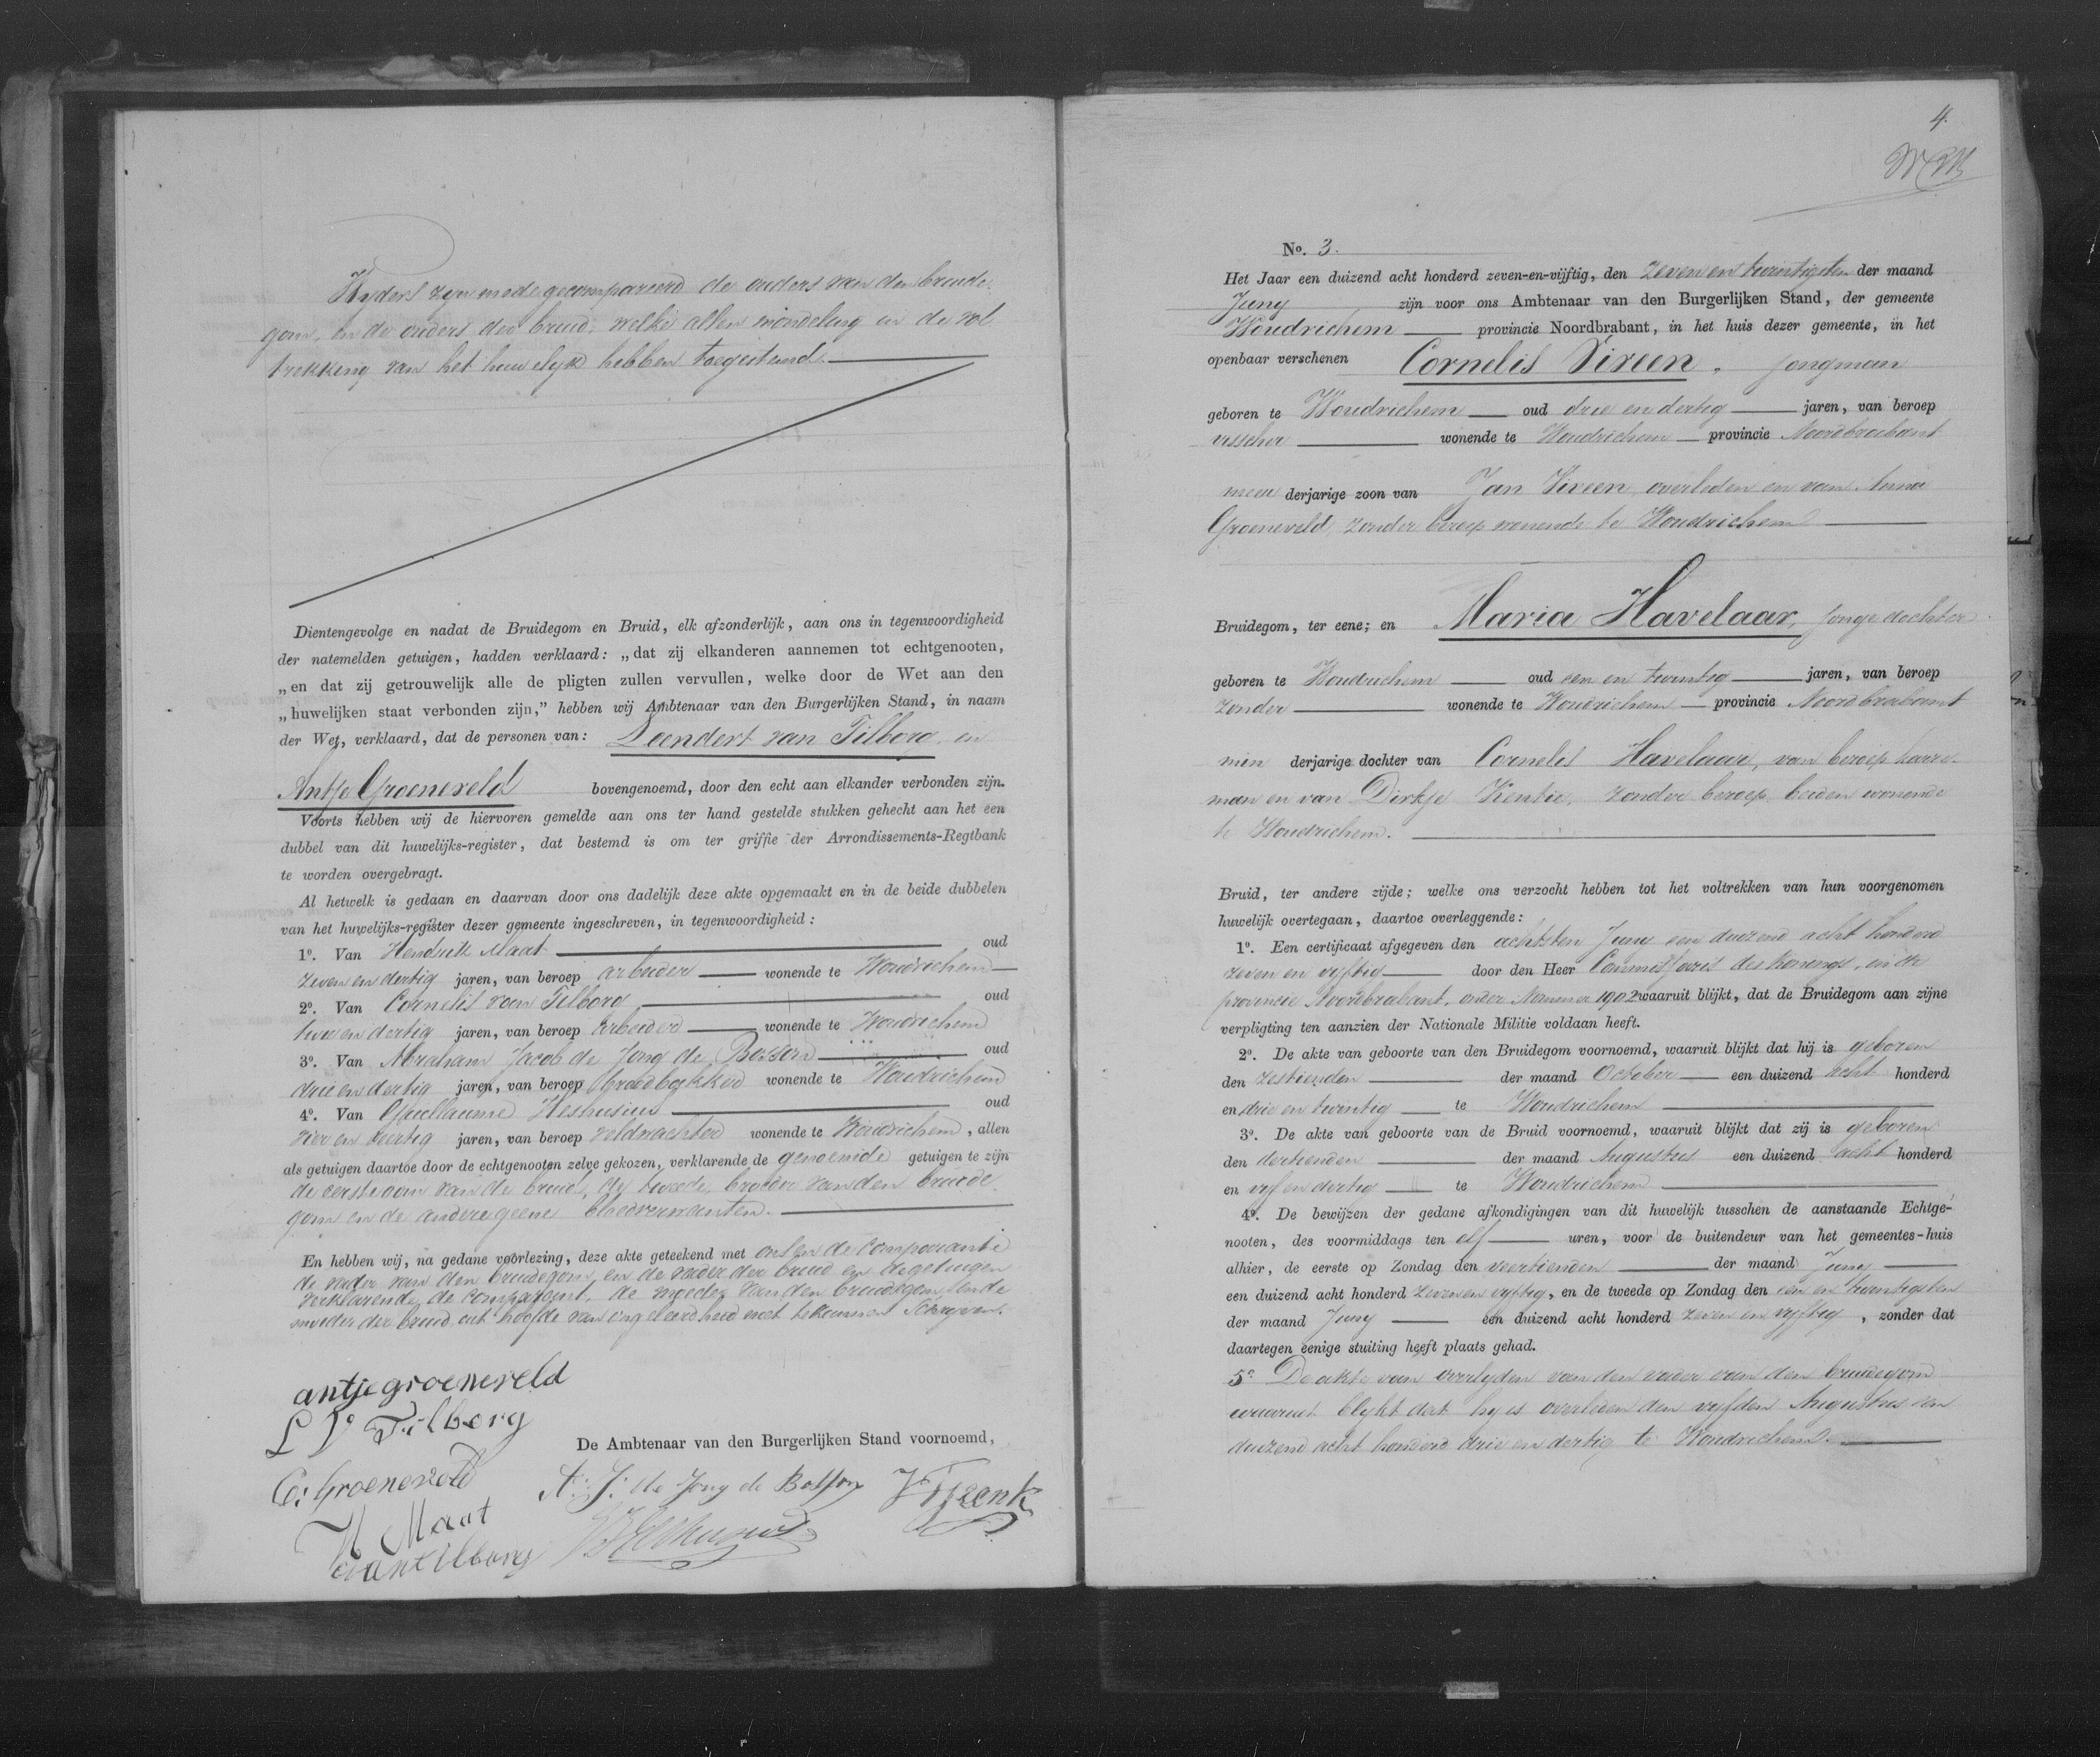 Wyders zyn mede gecompareerd de ouders van den bruide-
gom, en de ouders der bruid, welke allen mondeling in de vol
trekking van het huwelyk hebben toegestemd.
Dientengevolge en nadat de Bruidegom en Bruid, elk afzonderlijk, aan ons in tegenwoordigheid
der natemelden getuigen, hadden verklaard: „dat zij elkanderen aannemen tot echtgenooten,
„en dat zij getrouwelijk alle de pligten zullen vervullen, welke door de Wet aan den
„huwelijken staat verbonden zijn,” hebben wij Ambtenaar van den Burgerlijken Stand, in naam
der Wet, verklaard, dat de personen van: Leendert van Tilborg en
Antje Groeneveld bovengenoemd, door den echt aan elkander verbonden zijn.
Voorts hebben wij de hiervoren gemelde aan ons ter hand gestelde stukken gehecht aan het een
dubbel van dit huwelijks-register, dat bestemd is om ter griffie der Arrondissements-Regtbank
te worden overgebragt.
Al hetwelk is gedaan en daarvan door ons dadelijk deze akte opgemaakt en in de beide dubbelen
van het huwelijks-register dezer gemeente ingeschreven, in tegenwoordigheid:
1º. Van Hendrik Maat oud
zeven en dertig jaren, van beroep arbeider wonende te Woudrichem
2º. Van Cornelis van Tilborg oud
twee en dertig jaren, van beroep arbeider wonende te Woudrichem
3º. Van Abraham Jacob de Jong de Bosson oud
drie en dertig jaren, van beroep broodbakker wonende te Woudrichem
4º. Van Guillaume Heshusius oud
vier en veertig jaren, van beroep veldwachter wonende te Woudrichem, allen
als getuigen daartoe door de echtgenooten zelve gekozen, verklarende de genoemde getuigen te zijn
de eerste oom van de bruid, de tweede, broeder van den bruide-
gom en de andere geene bloedverwanten.
En hebben wij, na gedane voorlezing, deze akte geteekend met ons en de comparante
de vader van den bruidegom, en de vader der bruid en de getuigen
verklarende de comparant, de moeder van den bruidegom, en de
moeder der bruid, uit hoofde van ongeleerdheid niet te kunnen Schryven.
antje groeneveld
L V Tilborg
De Ambtenaar van den Burgerlijken Stand voornoemd,
C: Groeneveld
A: J: de Jong de Bosson
H Maat
C van tilborg
4.
No. 3.
Het Jaar een duizend acht honderd zeven-en-vijftig, den zeven en twintigsten der maand
Juny zijn voor ons Ambtenaar van den Burgerlijken Stand, der gemeente
Woudrichem provincie Noordbrabant, in het huis dezer gemeente, in het
openbaar verschenen Cornelis Vireen, jongman
geboren te Woudrichem oud drie en dertig jaren, van beroep
visscher wonende te Woudrichem provincie Noordbrabant
meerderjarige zoon van Jan Vireen, overleden en van Anna
Groeneveld, zonder beroep wonende te Woudrichem
Bruidegom, ter eene; en Maria Havelaar, jonge dochter
geboren te Woudrichem oud een en twintig jaren, van beroep
zonder wonende te Woudrichem provincie Noordbrabant
minderjarige dochter van Cornelis Havelaar, van beroep
man en van Dirkje Kentie, zonder beroep, beiden wonende
te Woudrichem.
Bruid, ter andere zijde; welke ons verzocht hebben tot het voltrekken van hun voorgenomen
huwelijk overtegaan, daartoe overleggende:
1º. Een certificaat afgegeven den achtsten Juny een duizend acht honderd
zeven en vyftig door den Heer Commissaris des Konings, in de
provincie Noordbrabant, onder Nommer 1902 waaruit blijkt, dat de Bruidegom aan zijne
verpligting ten aanzien der Nationale Militie voldaan heeft.
2º. De akte van geboorte van den Bruidegom voornoemd, waaruit blijkt dat hij is geboren
den zestienden der maand October een duizend acht honderd
en drie en twintig te Woudrichem
3º. De akte van geboorte van de Bruid voornoemd, waaruit blijkt dat zij is geboren
den dertienden der maand Augustus een duizend acht honderd
en vyf en dertig te Woudrichem
4º. De bewijzen der gedane afkondigingen van dit huwelijk tusschen de aanstaande Echtge-
nooten, des voormiddags ten elf uren, voor de buitendeur van het gemeentes-huis
alhier, de eerste op Zondag den veertienden der maand Juny
een duizend acht honderd zeven en vyftig, en de tweede op Zondag den een en twintigsten
der maand Juny een duizend acht honderd zeven en vyftig, zonder dat
daartegen eenige stuiting heeft plaats gehad.
5º De akte van overlyden van den vader van den bruidegom
waaruit blykt dat hy is overleden den vyfden Augustus een
duizend acht honderd drie en dertig te Woudrichem.